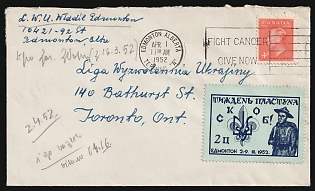 L. W. U. Widdil Edmonton
10421-92 St
Edmonton, Alta
16.3.52
EDMONTON ALBERTA
APR 1
11 AM
1952
FIGHT CANCER
GIVE NOW
Liga Wyzwolennia Ukrajiny
140 Bathurst St.
Toronto, Ont.
2.4.52
ТИЖДЕНЬ ПЛАСТУНА
С К О Б!
2ц
EDMONTON 2-9. III. 1952.